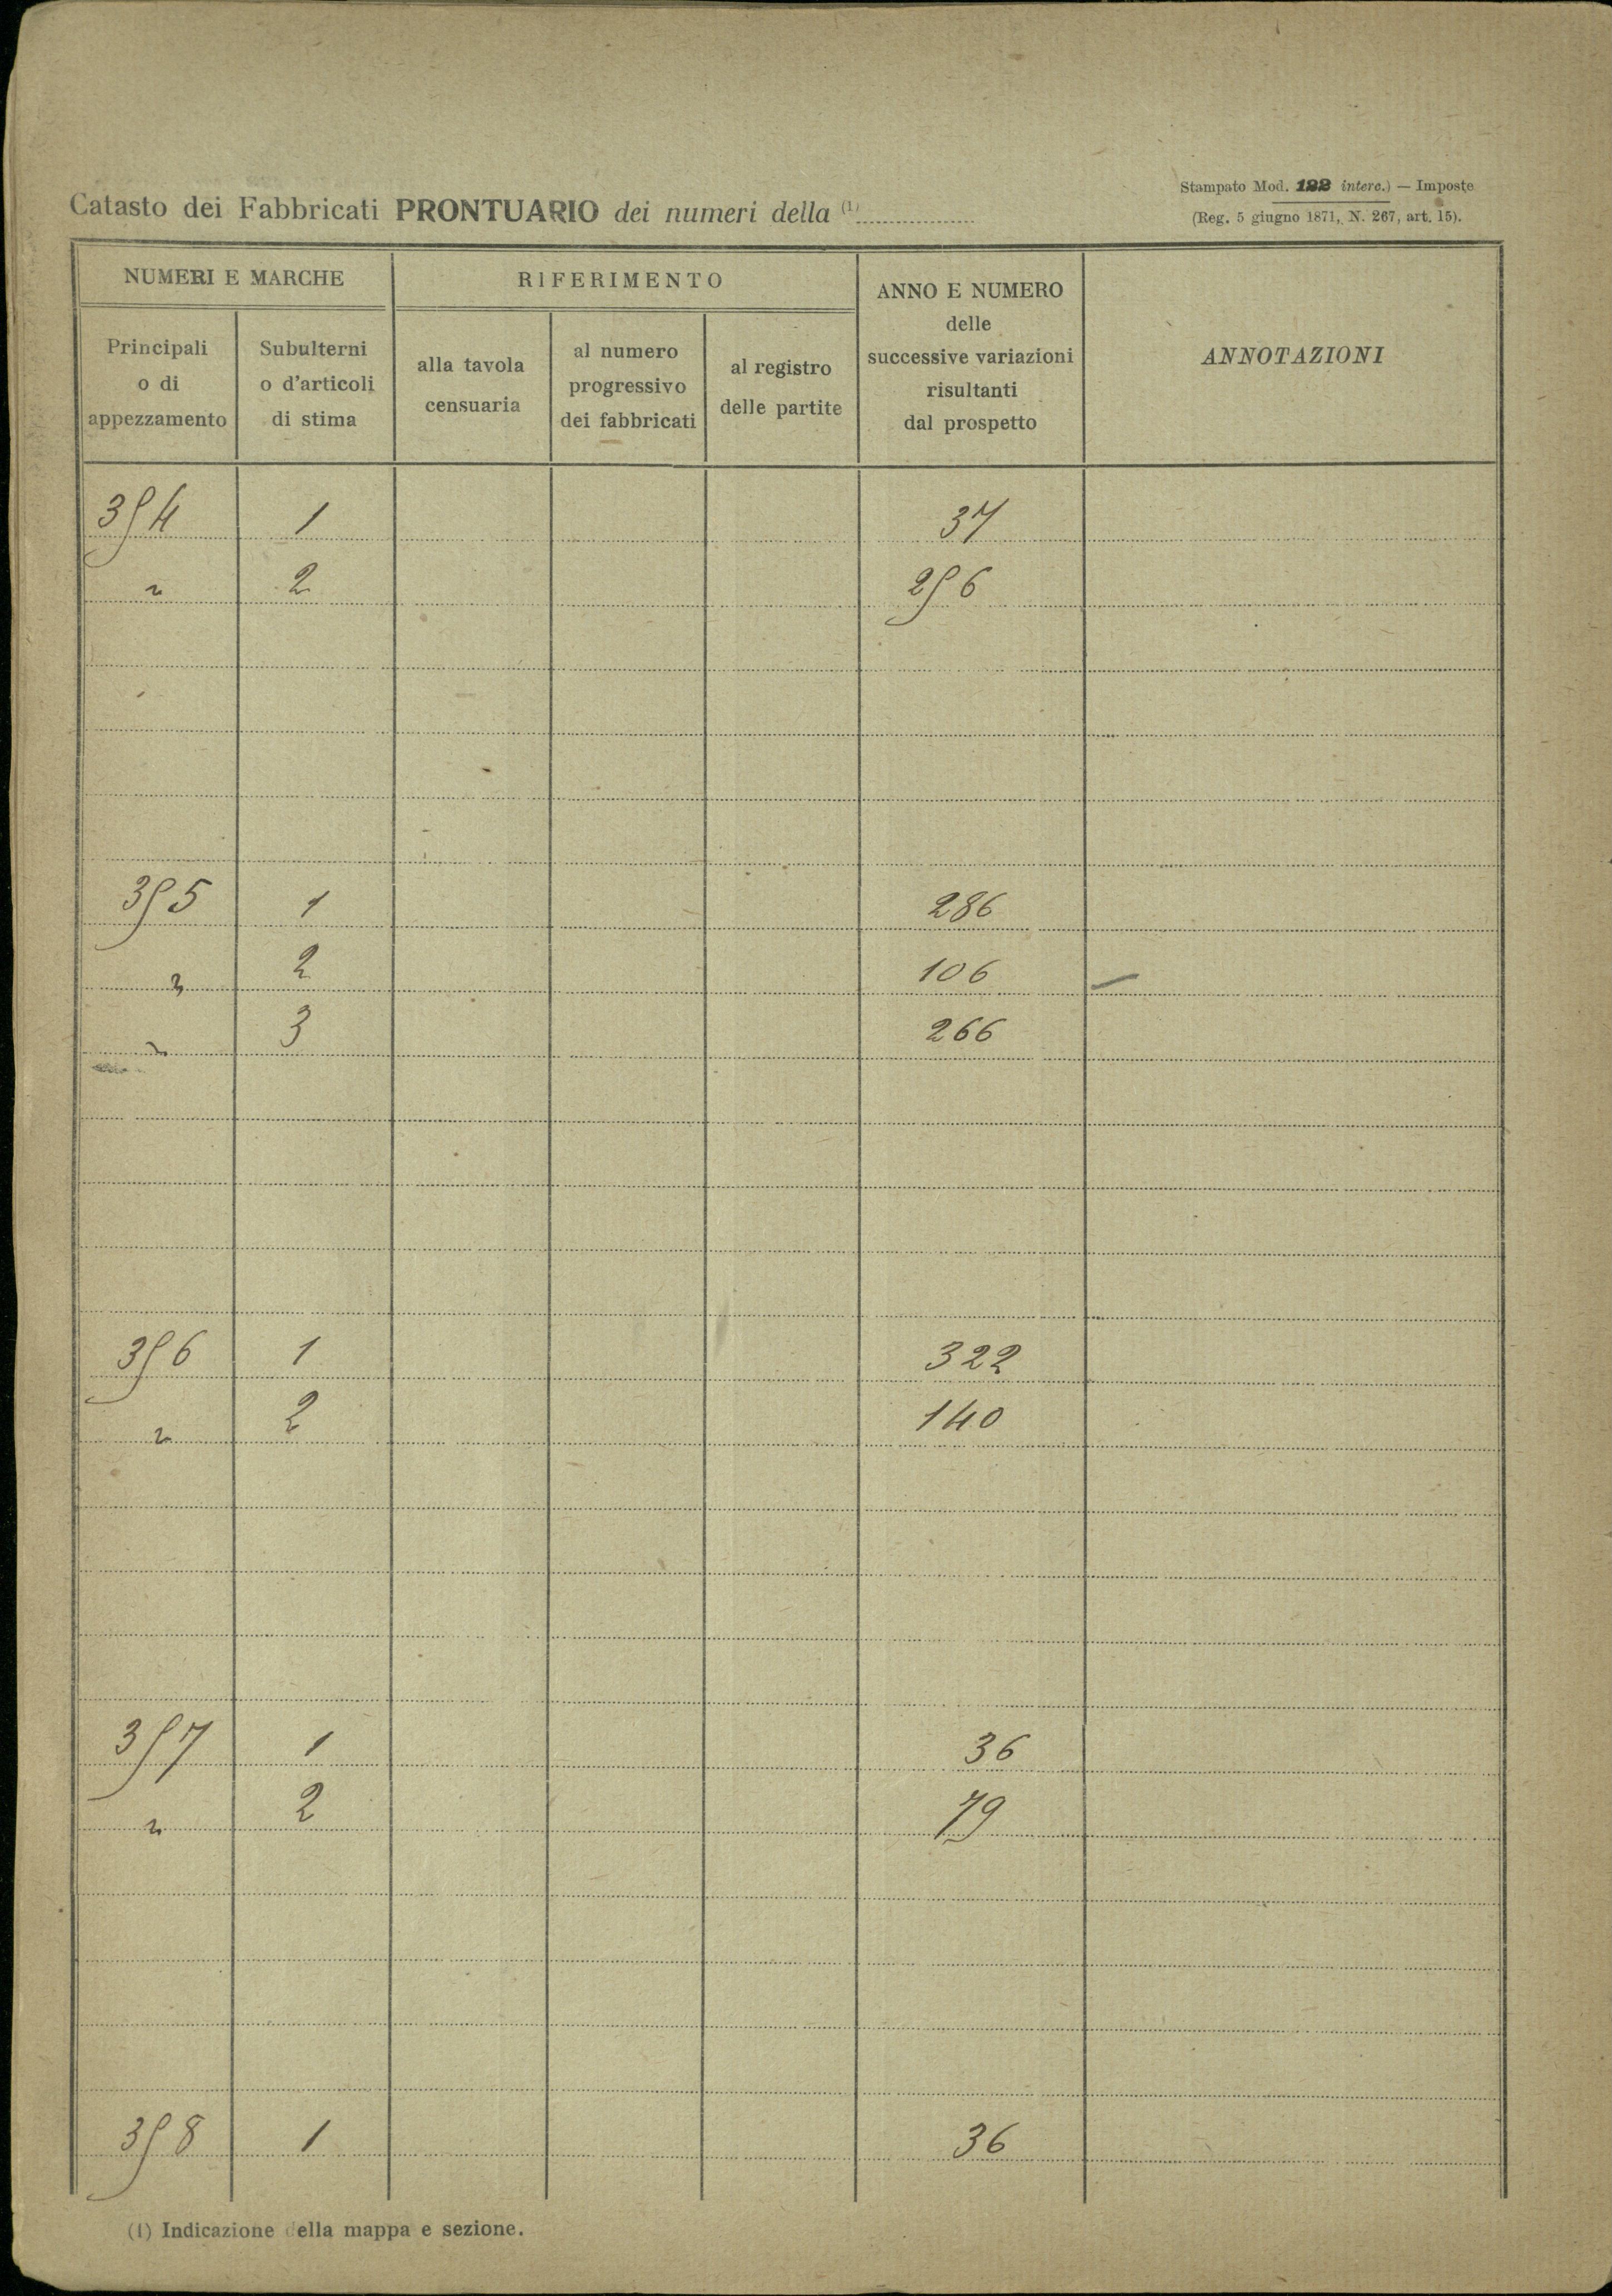 Stampato Mod. 122 interc.) — Imposte
(Reg. 5 giugno 1871, N. 267, art. 15).
Catasto dei Fabbricati PRONTUARIO dei numeri della (1)
NUMERI E MARCHE
RIFERIMENTO
ANNO E NUMERO
delle
successive variazioni
risultanti
dal prospetto
ANNOTAZIONI
Principali
o di
appezzamento
Subulterni
o d'articoli
di stima
alla tavola
censuaria
al numero
progressivo
dei fabbricati
al registro
delle partite
394 1 37
" 2 296
395 1 286
" 2 106 —
" 3 266
396 1 322
" 2 140
397 1 36
" 2 79
398 1 36
(1) Indicazione della mappa e sezione.